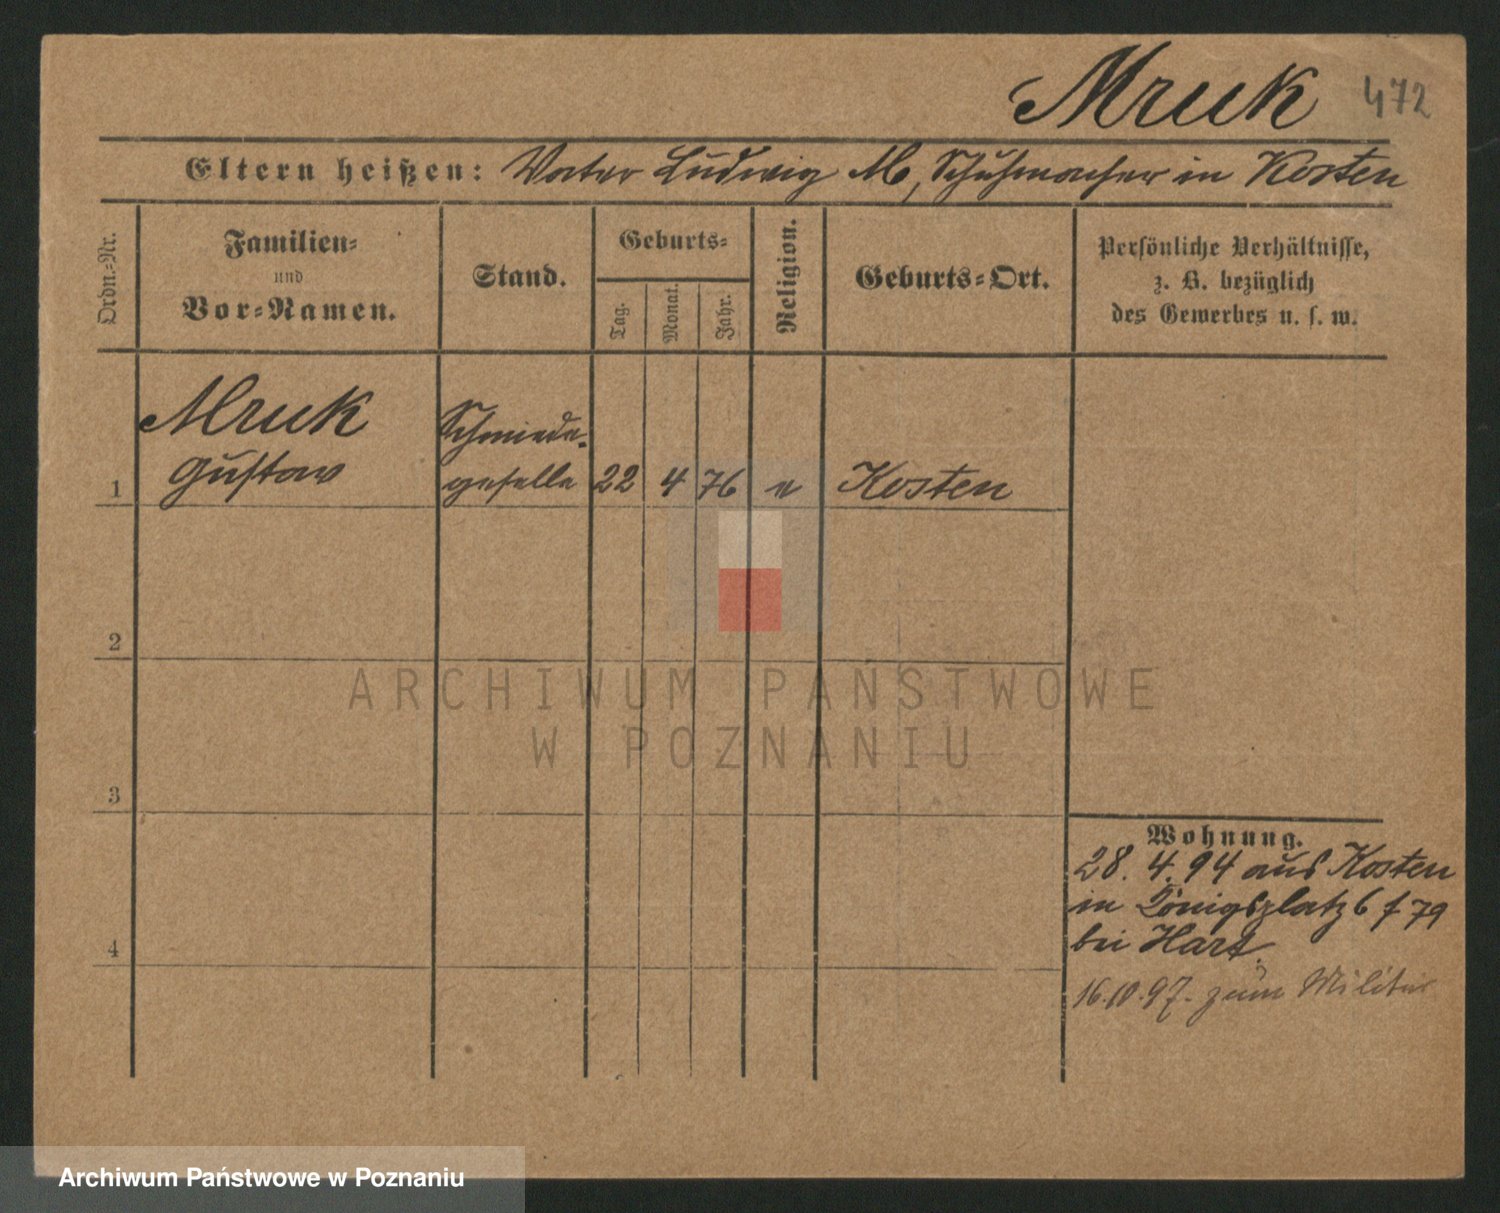 Mruk 472
Eltern heißen: Vater Ludwig M, Schuhmacher in Kosten
Ordn.-Nr.
Familien-
und
Vor-Namen.
Stand.
Geburts-
Tag.
Monat.
Jahr.
Religion.
Geburts-Ort.
Persönliche Verhältnisse,
z. B. bezüglich
des Gewerbes u. s. w.
Mruk Schmiede-
1 Gustav geselle 22 4 76 e Kosten
2
ARCHIWUM PAŃSTWOWE
W POZNANIU
3
Wohnung.
28. 4. 94 aus Kosten
in Königsplatz 6 f 79
4 bei Hart.
16.10.97. zum Militär
Archiwum Państwowe w Poznaniu